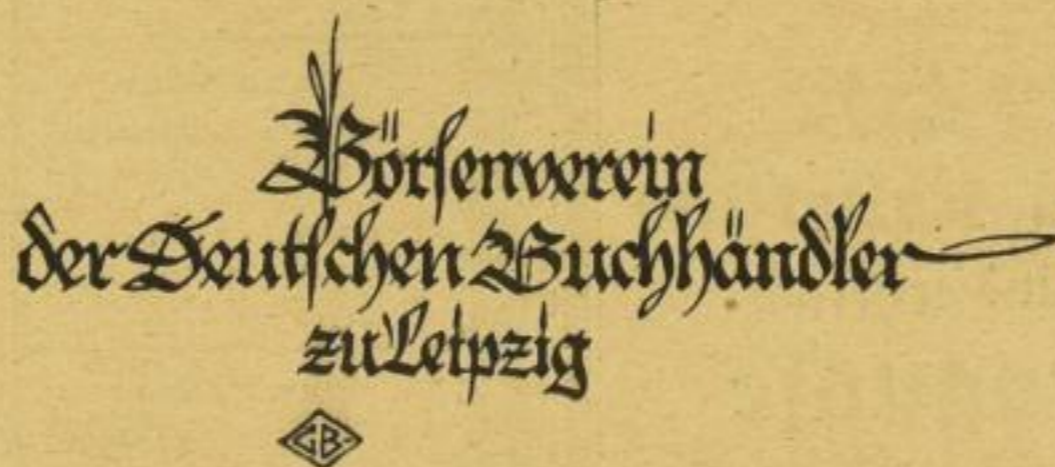 Börsenverein
der Deutschen Buchhändler
zu Leipzig
GB